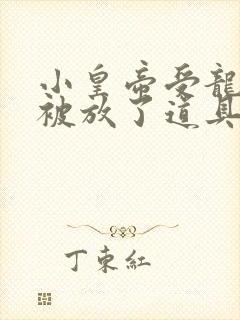 小皇帝受龍
被放了道具
丁東紅